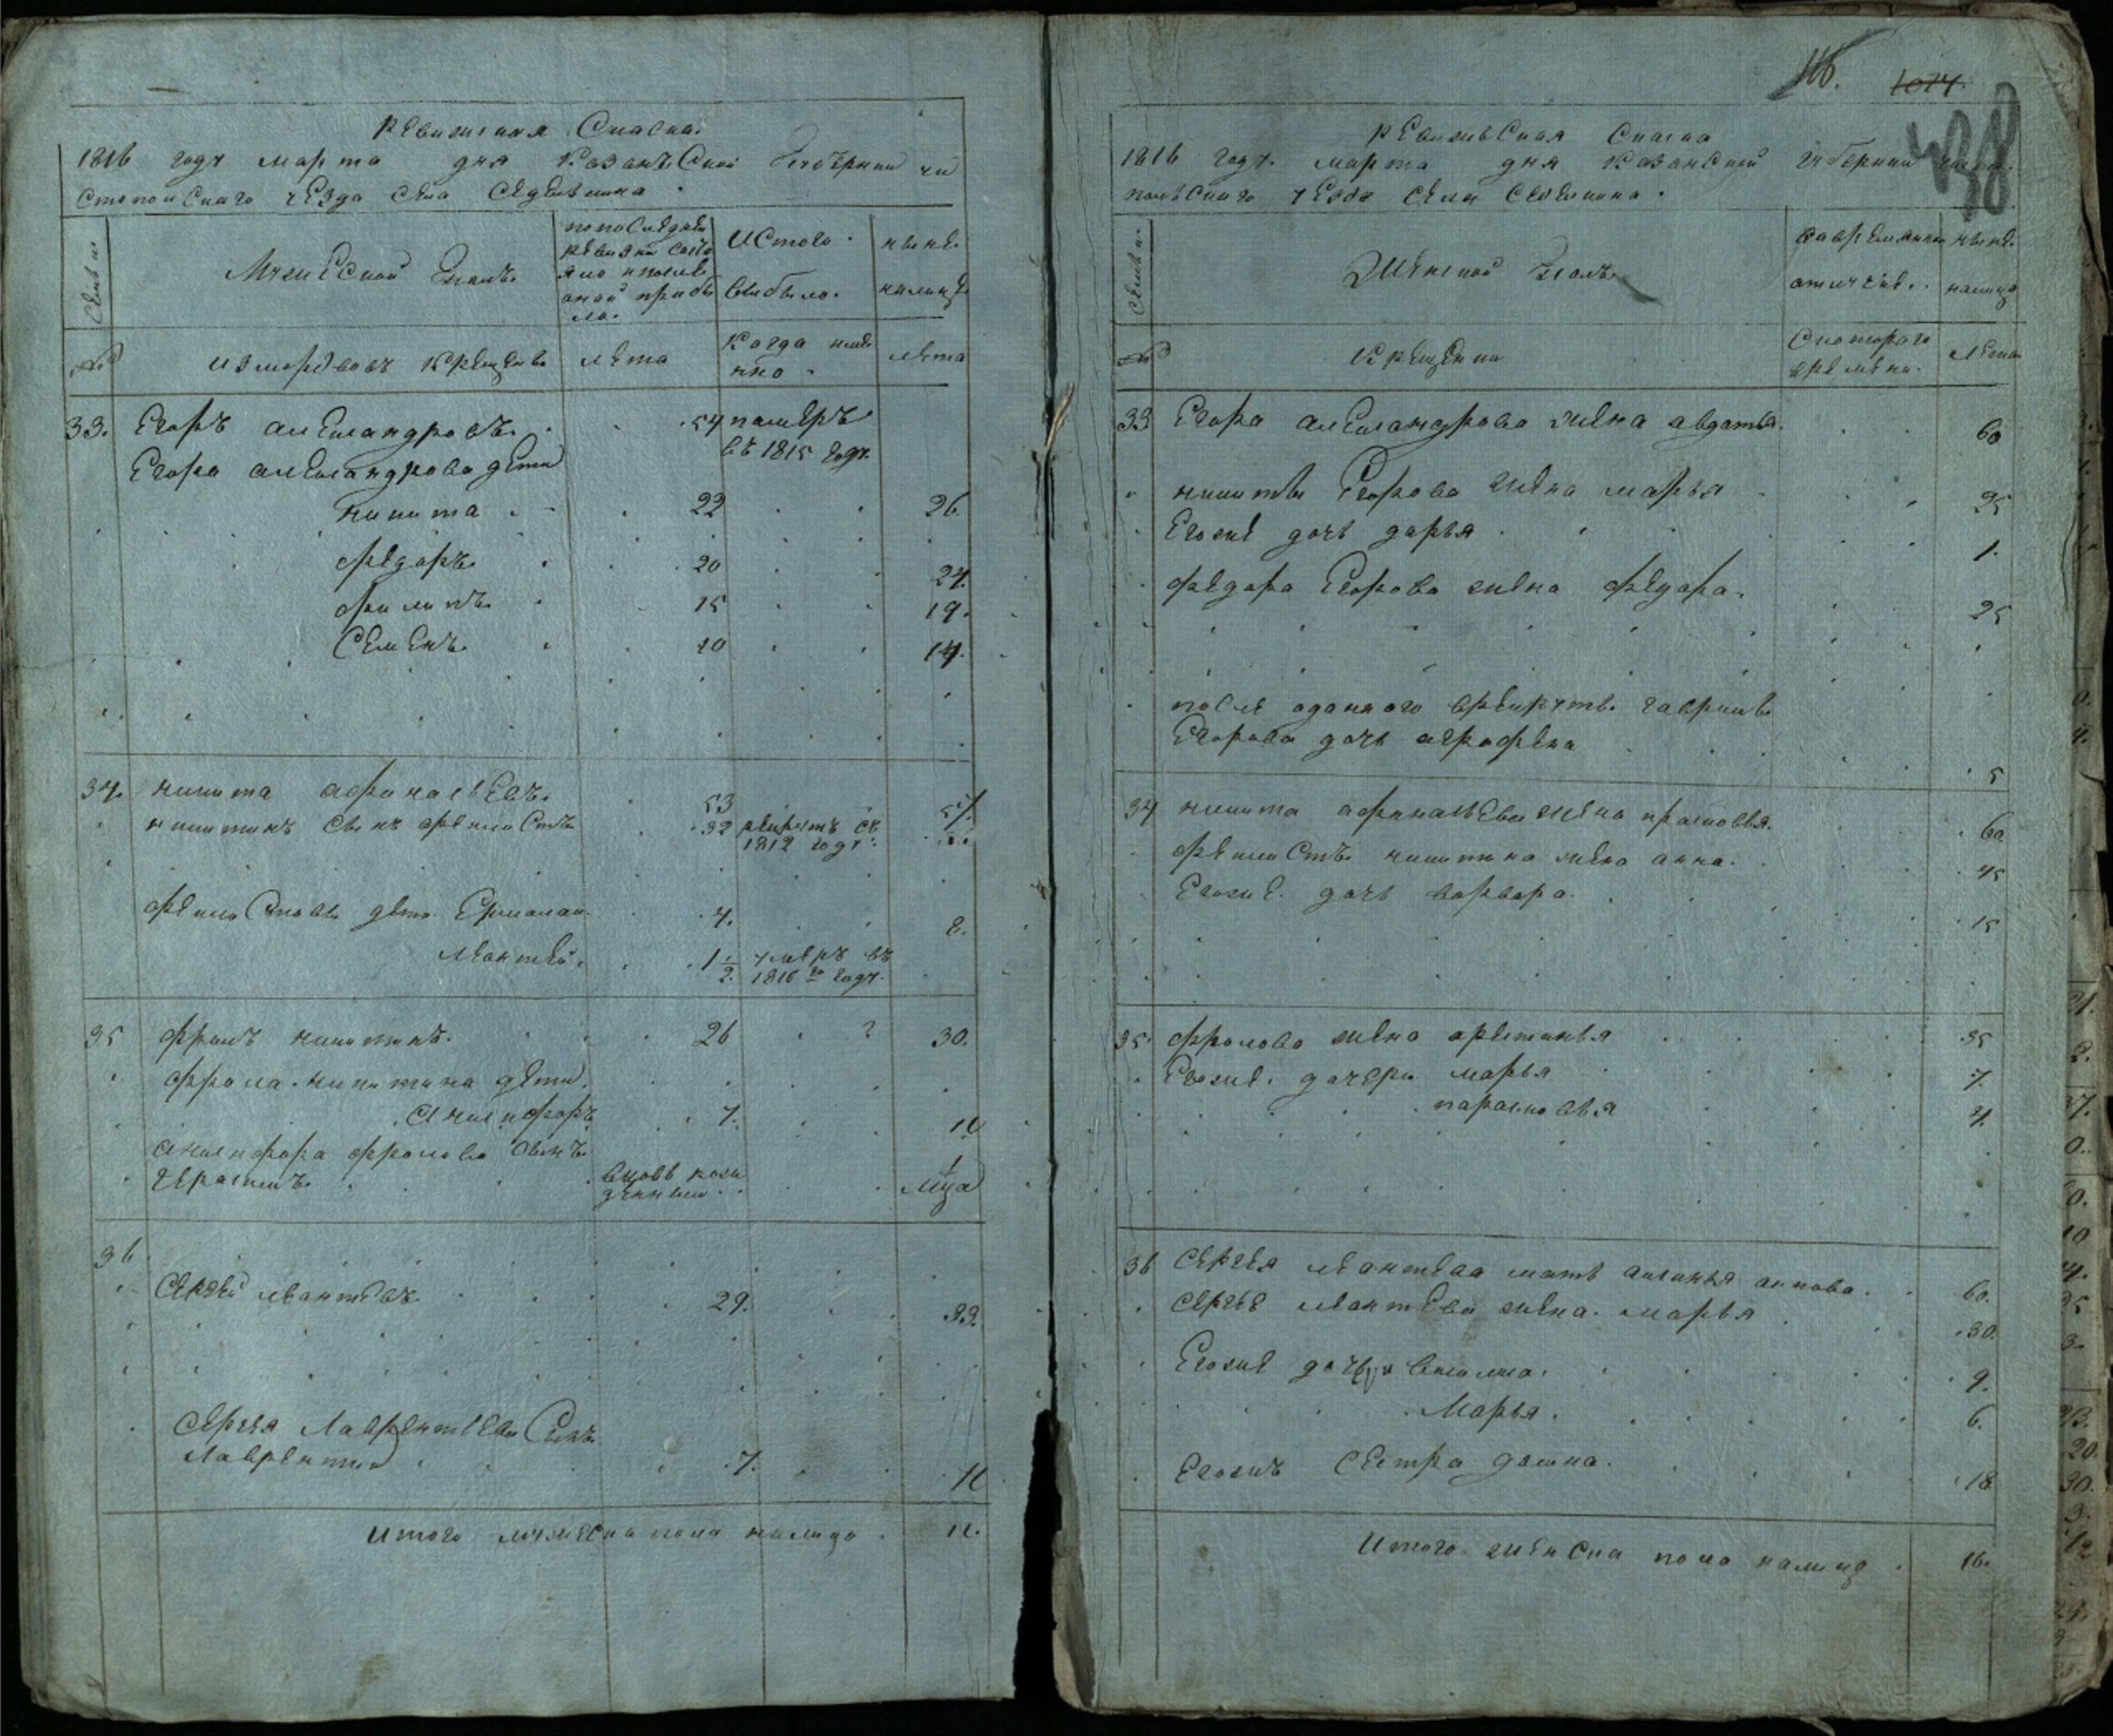 Ревиская Скаска
1816 году марта дня Казанской Губернии чи
стопольскаго уезда села Седелькина
Семьи
Мужеской полъ
по последней
ревизии состо
яло и после
оной прибы
ло.
Ис того
выбыло.
ныне
налицо
№
из мордовъ крещеныхъ
лета
Когда имя
нно
лета
33. Егоръ александровъ 54 помѣръ
въ 1815 году
Егора александрова дети
никита 22 26
федоръ 20 24.
филипъ 15 19.
Семенъ 10 14.
34. никита афонасьевъ 53 57.
никитинъ сынъ феклистъ 32 рекрутъ съ
1812 году
феклистовы дети Ермолай 4. 8.
леонтей 1 1/2 умеръ въ
1816 го году.
35 фролъ никитинъ 26 ? 30.
фрола никитина дети
анкифоръ 7. 11
анкифора фролова сынъ
Герасимъ вновь рож
денный 1 мца
36
Сергей леонтевъ 29. 33.
Сергея Лаврентьева Сынъ
Лаврентий 7. 11
Итого мужеска пола налицо 11.
116. 1074.
438
Ревизьская Скаска
1816 году марта дня Казанской губернии чисто
польскаго уезда села Седелкина
Семьи
Женской полъ
во временной
отлучке
ныне
налицо
№
Крещении
С котораго
времени.
Лета
33 Егора александрова жена авдотья 60
никиты Егорова жена марья 25
Егоже дочь дарья 1.
федора Егорова жена федора 25
после оданного в рекруты гаврилы
Егорова дочь аграфена 5
34 никита афонасьева жена прасковья 60
феклистъ никитина жена анна 45
Егоже дочь варвара 15
35. фролова жена аретинья 35
Егоже дочери марья 7.
парасковья 4.
36 Сергея леонтева мать аксинья 60.
Сергее леонтева жена марья 30.
Егоже дочери 9.
Марья 6.
Егожъ сестра домна 18
Итого женска пола налицо 16.